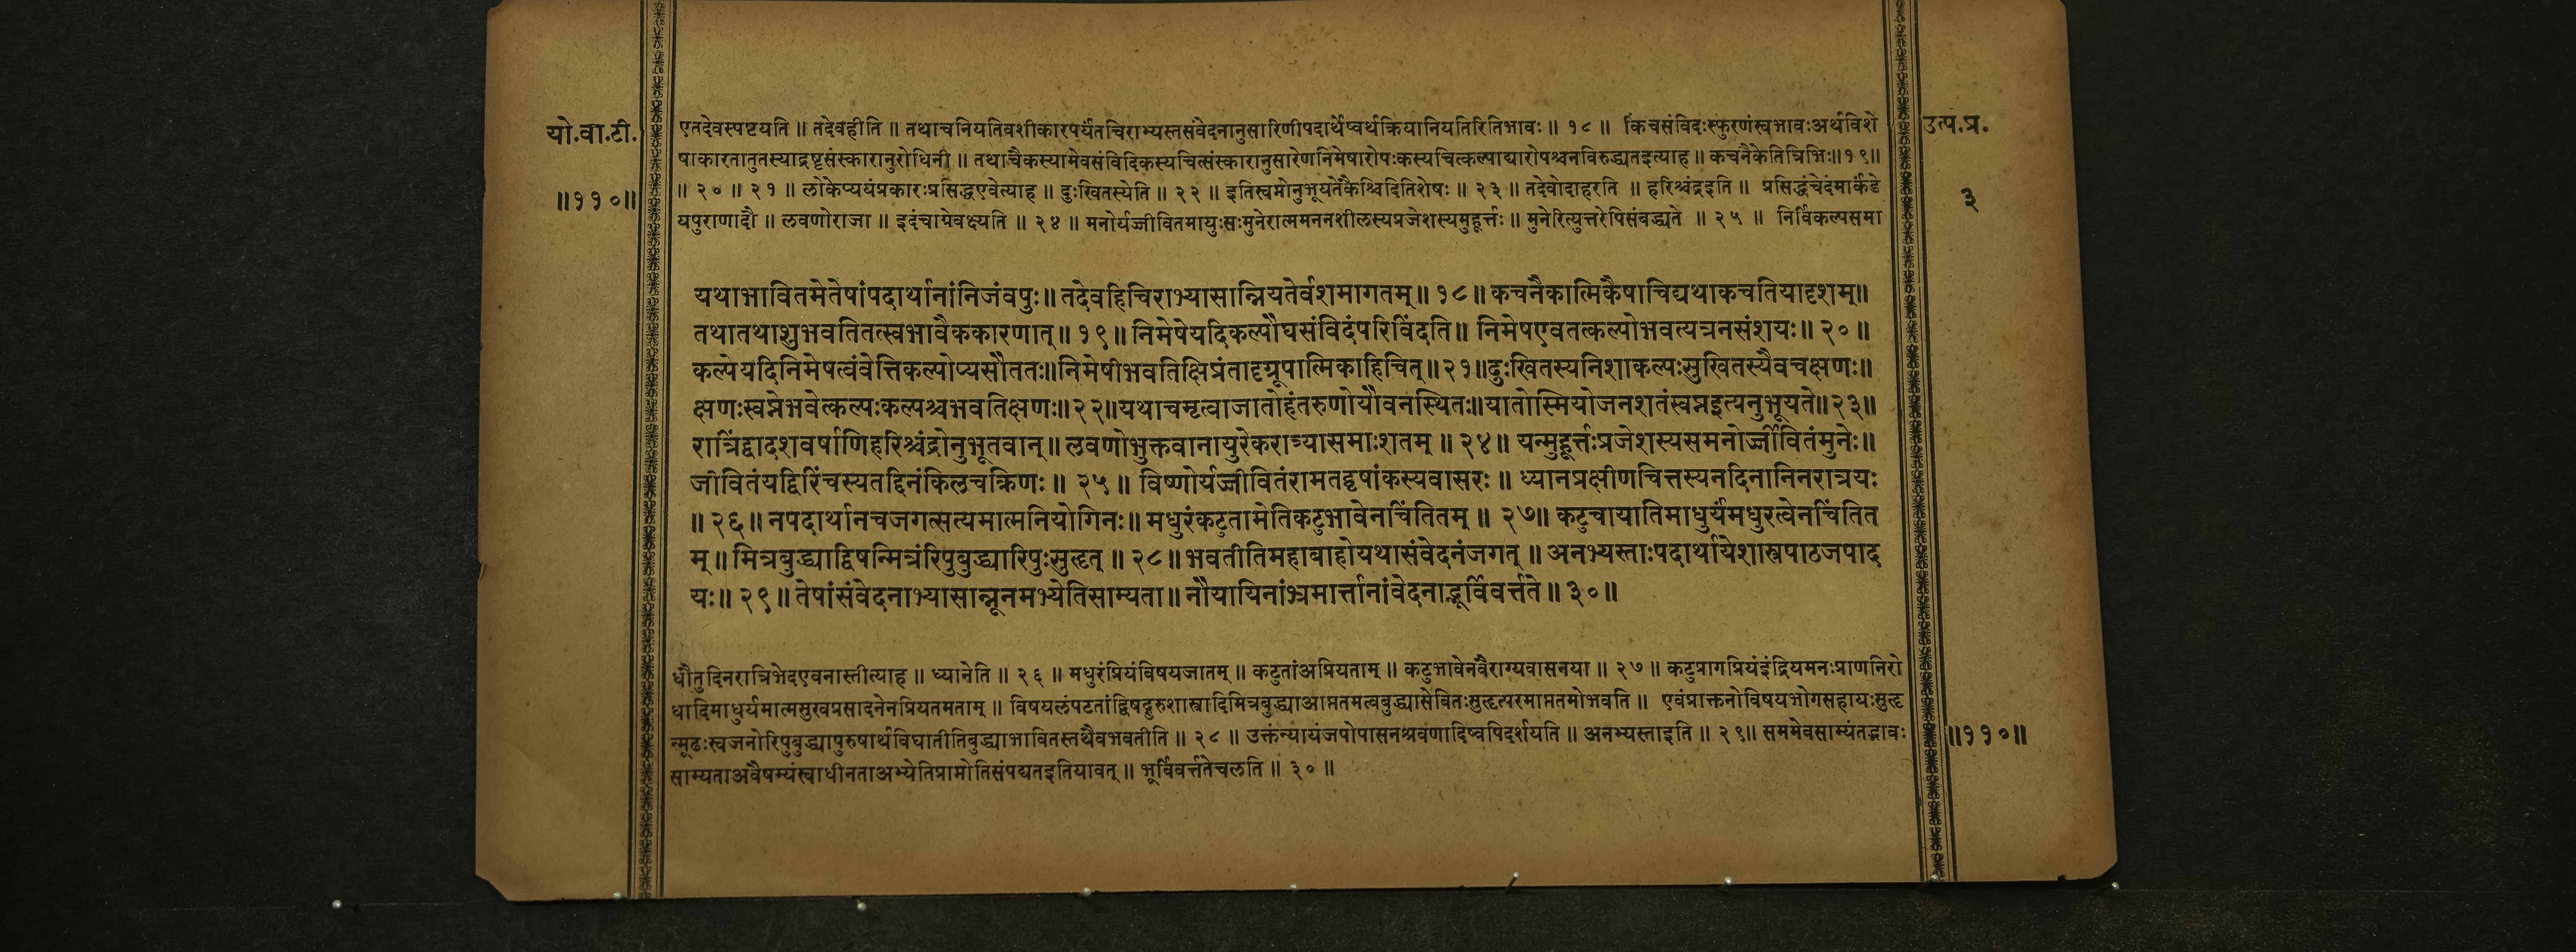 यो.वा.टी.
॥११०॥
उत्प.प्र.
३
एतदेवस्पष्टयति ॥ तदेवहीति ॥ तथाचनियतिवशीकारपर्यंतचिराभ्यस्तसंवेदनानुसारिणीपदार्थेष्वर्थक्रियानियतिरितिभावः ॥ १८ ॥ किंचसंविदःस्फुरणंस्वभावःअर्थविशे
षाकारतातुतस्याद्दष्टसंस्कारानुरोधिनी ॥ तथाचैकस्यामेवसंविदिकस्यचित्संस्कारानुसारेणनिमेषारोपःकस्यचित्कल्पाद्यारोपश्चनविरुद्ध्यतइत्याह ॥ कचनैकेतित्रिभिः॥१९॥
॥ २० ॥ २१ ॥ लोकेप्ययंप्रकारःप्रसिद्धएवेत्याह ॥ दुःखितस्येति ॥ २२ ॥ इतिस्वप्नोनुभूयतेकैश्चिदितिशेषः ॥ २३ ॥ तदेवोदाहरति ॥ हरिश्चंद्रइति ॥ प्रसिद्धंचेदंमार्कंडे
यपुराणादौ ॥ लवणोराजा ॥ इदंचाग्रेवक्ष्यति ॥ २४ ॥ मनोर्यज्जीवितमायुःसःमुनेरात्ममननशीलस्यप्रजेशस्यमुहूर्त्तः ॥ मुनेरित्युत्तरेपिसंबद्ध्यते ॥ २५ ॥ निर्विकल्पसमा
यथाभावितमेतेषांपदार्थानांनिजंवपुः॥ तदेवहिचिराभ्यासान्नियतेर्वशमागतम्॥ १८॥ कचनैकात्मिकैषाचिद्यथाकचतियादृशम्॥
तथातथाशुभवतितत्स्वभावैककारणात्॥ १९॥ निमेषेयदिकल्पौघसंविदंपरिविंदति॥ निमेषएवतत्कल्पोभवत्यत्रनसंशयः॥ २० ॥
कल्पेयदिनिमेषत्वंवेत्तिकल्पोप्यसौततः॥निमेषीभवतिक्षिप्रंतादृग्रूपात्मिकाहिचित्॥२१॥दुःखितस्यनिशाकल्पःसुखितस्यैवचक्षणः॥
क्षणःस्वप्नेभवेत्कल्पःकल्पश्चभवतिक्षणः॥२२॥यथाचमृत्वाजातोहंतरुणोयौवनस्थितः॥यातोस्मियोजनशतंस्वप्नइत्यनुभूयते॥२३॥
रात्रिंद्वादशवर्षाणिहरिश्चंद्रोनुभूतवान्॥ लवणोभुक्तवानायुरेकरात्र्यासमाःशतम् ॥ २४॥ यन्मुहूर्त्तःप्रजेशस्यसमनोर्ज्जीवितंमुनेः॥
जीवितंयद्विरिंचस्यतद्दिनंकिलचक्रिणः ॥ २५ ॥ विष्णोर्यज्जीवितंरामतद्वृषांकस्यवासरः ॥ ध्यानप्रक्षीणचित्तस्यनदिनानिनरात्रयः
॥ २६॥ नपदार्थानचजगत्सत्यमात्मनियोगिनः॥ मधुरंकटुतामेतिकटुभावेनचिंतितम् ॥ २७॥ कटुचायातिमाधुर्यंमधुरत्वेनचिंतित
म्॥ मित्रबुद्ध्याद्विषन्मित्रंरिपुबुद्ध्यारिपुःसुहृत् ॥ २८॥ भवतीतिमहाबाहोयथासंवेदनंजगत् ॥ अनभ्यस्ताःपदार्थायेशास्त्रपाठजपाद
यः॥ २९॥ तेषांसंवेदनाभ्यासान्नूनमभ्येतिसाम्यता॥ नौयायिनांभ्रमार्त्तानांवेदनाद्भूर्विवर्त्तते॥ ३०॥
धौतुदिनरात्रिभेदएवनास्तीत्याह ॥ ध्यानेति ॥ २६ ॥ मधुरंप्रियंविषयजातम् ॥ कटुतांअप्रियताम् ॥ कटुभावेनवैराग्यवासनया ॥ २७ ॥ कटुप्रागप्रियंइंद्रियमनःप्राणनिरो
धादिमाधुर्यमात्मसुखप्रसादनेनप्रियतमताम् ॥ विषयलंपटतांद्विषद्गुरुशास्त्रादिमित्रबुद्ध्याआप्ततमत्वबुद्ध्यासेवितःसुहृत्परमाप्ततमोभवति ॥ एवंप्राक्तनोविषयभोगसहायःसुहृ
न्मूढःस्वजनोरिपुबुद्ध्यापुरुषार्थविघातीतिबुद्ध्याभावितस्तथैवभवतीति ॥ २८ ॥ उक्तंन्यायंजपोपासनश्रवणादिष्वपिदर्शयति ॥ अनभ्यस्ताइति ॥ २९॥ सममेवसाम्यंतद्भावः
साम्यताअवैषम्यंस्वाधीनताअभ्येतिप्राप्नोतिसंपद्यतइतियावत् ॥ भूर्विवर्त्ततेचलति ॥ ३० ॥
॥११०॥